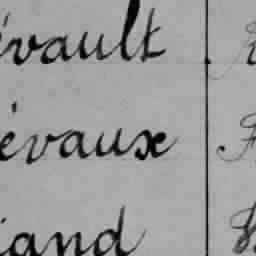 évault
évaux
iand